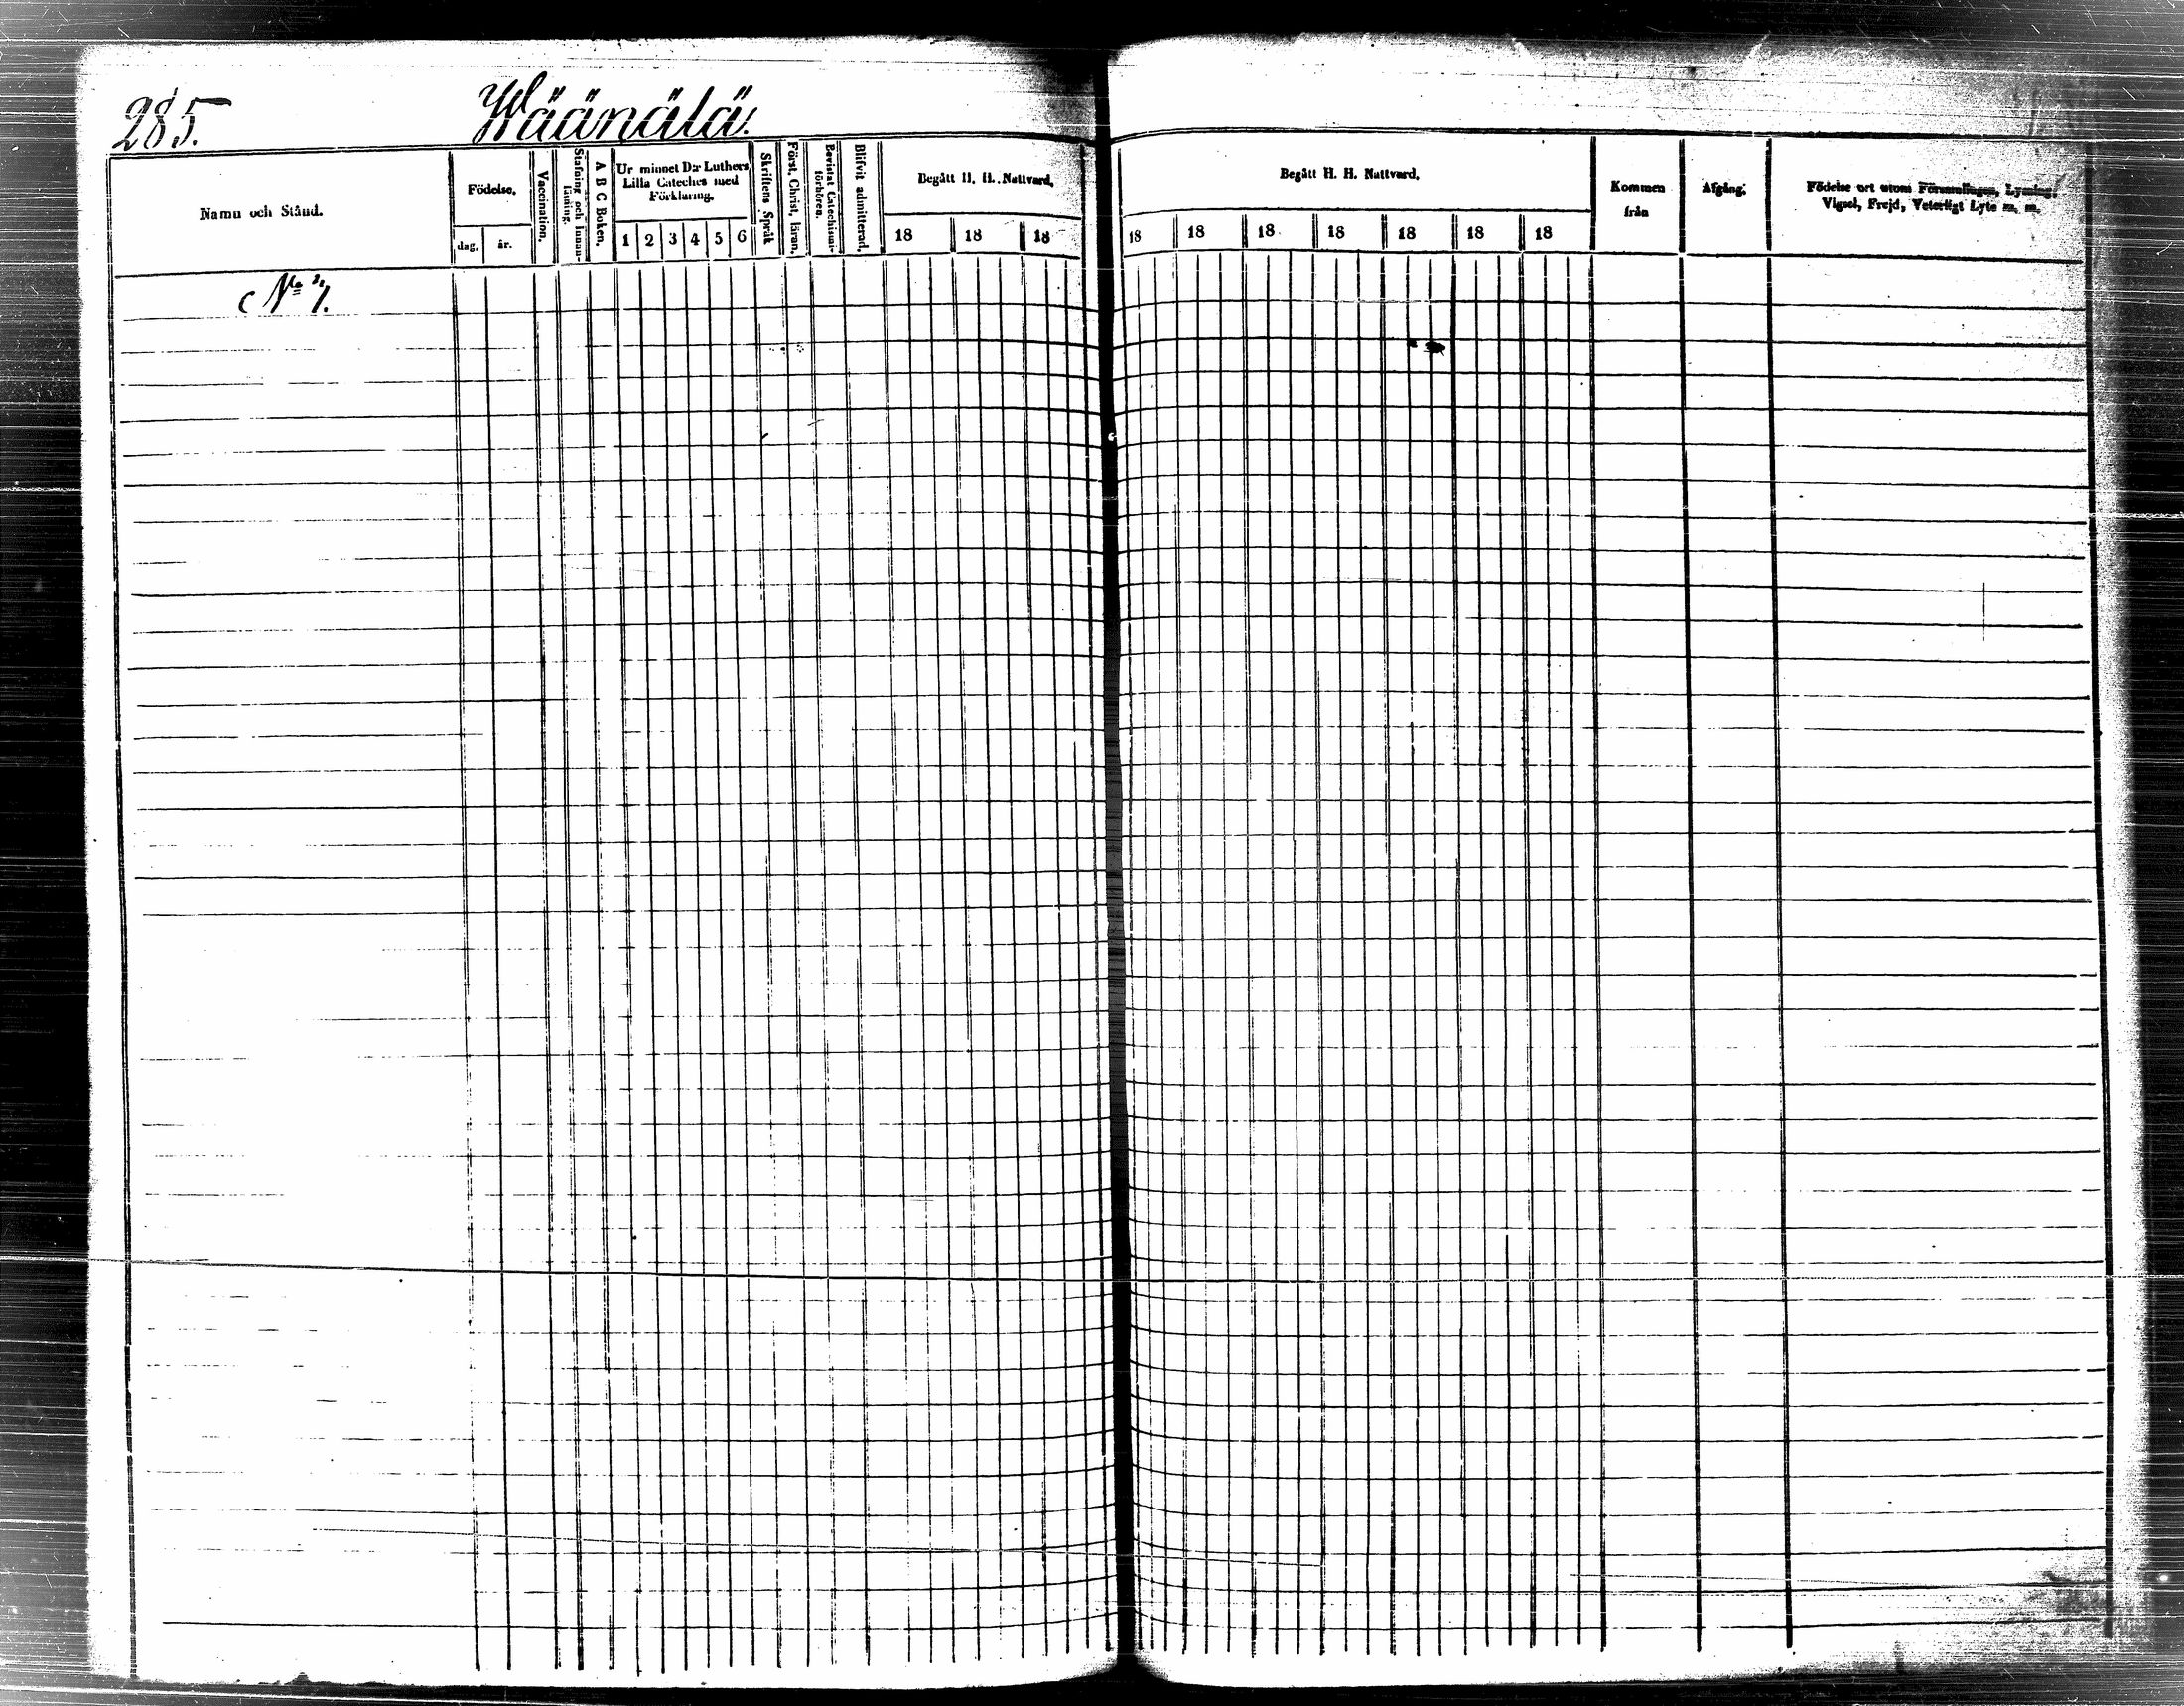 285. Wäänälä.
Namn och Stånd.
Födelse.
dag. år.
Vaccination.
Stafning och Innan-
läsning.
A B C Boken.
Ur minnet D:r Luthers
Lilla Cateches med
Förklaring.
1 2 3 4 5 6
Skriftens Språk
Först. Christ. läran.
Bevistat Catechismi-
förhören.
Blifvit admitterad.
Begått H. H. Nattvard.
18 18 18
Begått H. H. Nattvard.
18 18 18 18 18 18 18
Kommen
från
Afgång.
Födelse ort utom Församlingen, Lysning,
Vigsel, Frejd, Veterligt Lyte m. m.
No